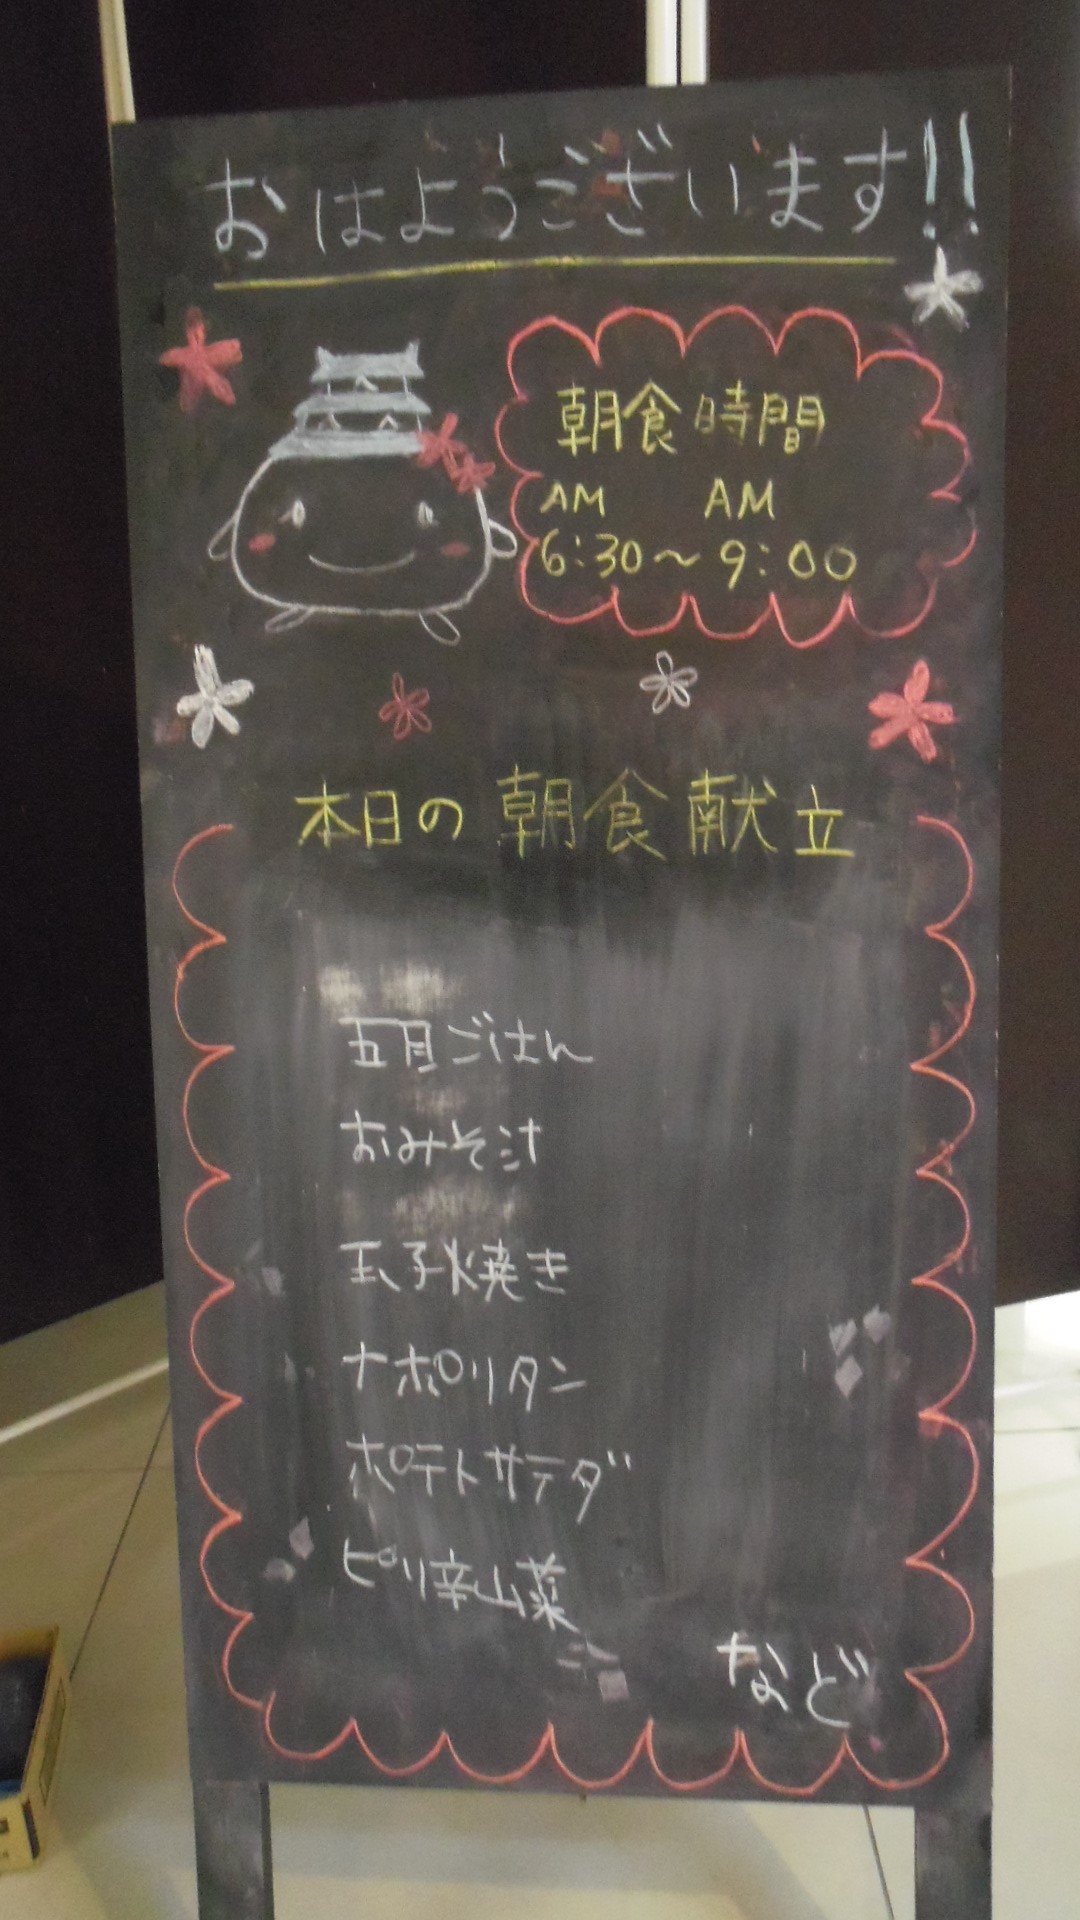 おはようございます!!
朝食時間
AM AM
6:30～9:00
本日の朝食献立
五目ごはん
おみそ汁
玉子焼き
ナポリタン
ポテトサラダ
ピリ辛山菜
など